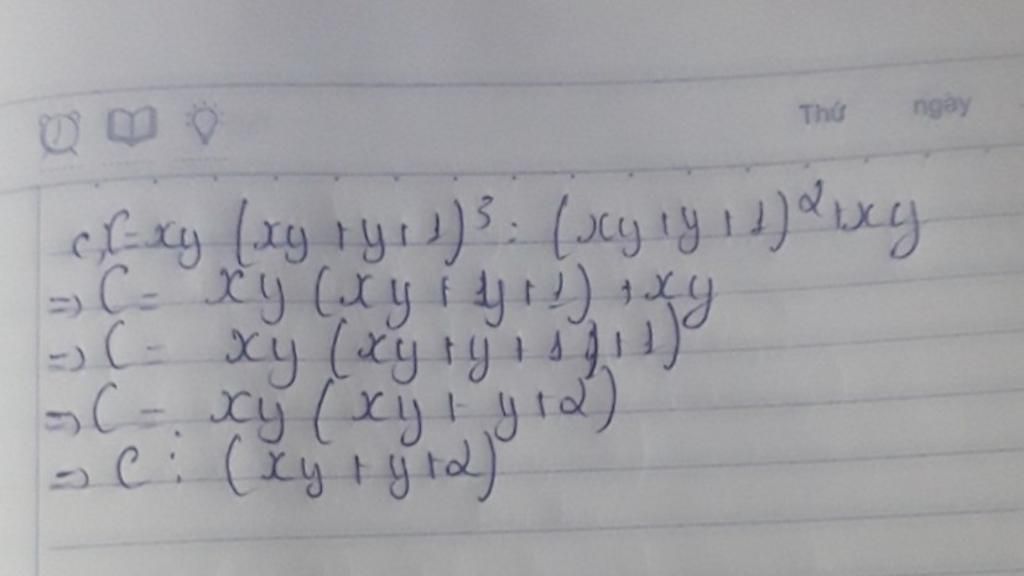 Thứ ngày
c, C = xy (xy + y + 1)³ : (xy + y + 1)² + xy
=> C = xy (xy + y + 1) + xy
=> C = xy (xy + y + 1 + 1)
=> C = xy (xy + y + 2)
=> C ⋮ (xy + y + 2)